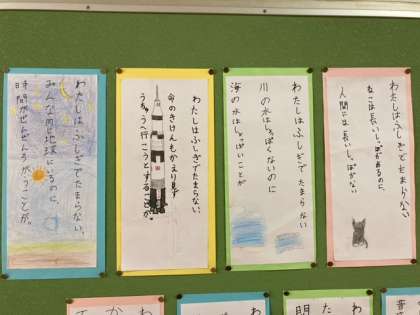 わたしはふしぎでたまらない
ねこは長いしっぽがあるのに、
人間には長いしっぽがない
わたしはふしぎでたまらない
川の水はしょっぱくないのに
海の水はしょっぱいことが
わたしはふしぎでたまらない、
命のきけんもかえり見ず
うちゅうへ行こうとすることが。
わたしはふしぎでたまらない、
みんな同じ地球にいるのに、
時間がぜんぜんちがうことが。